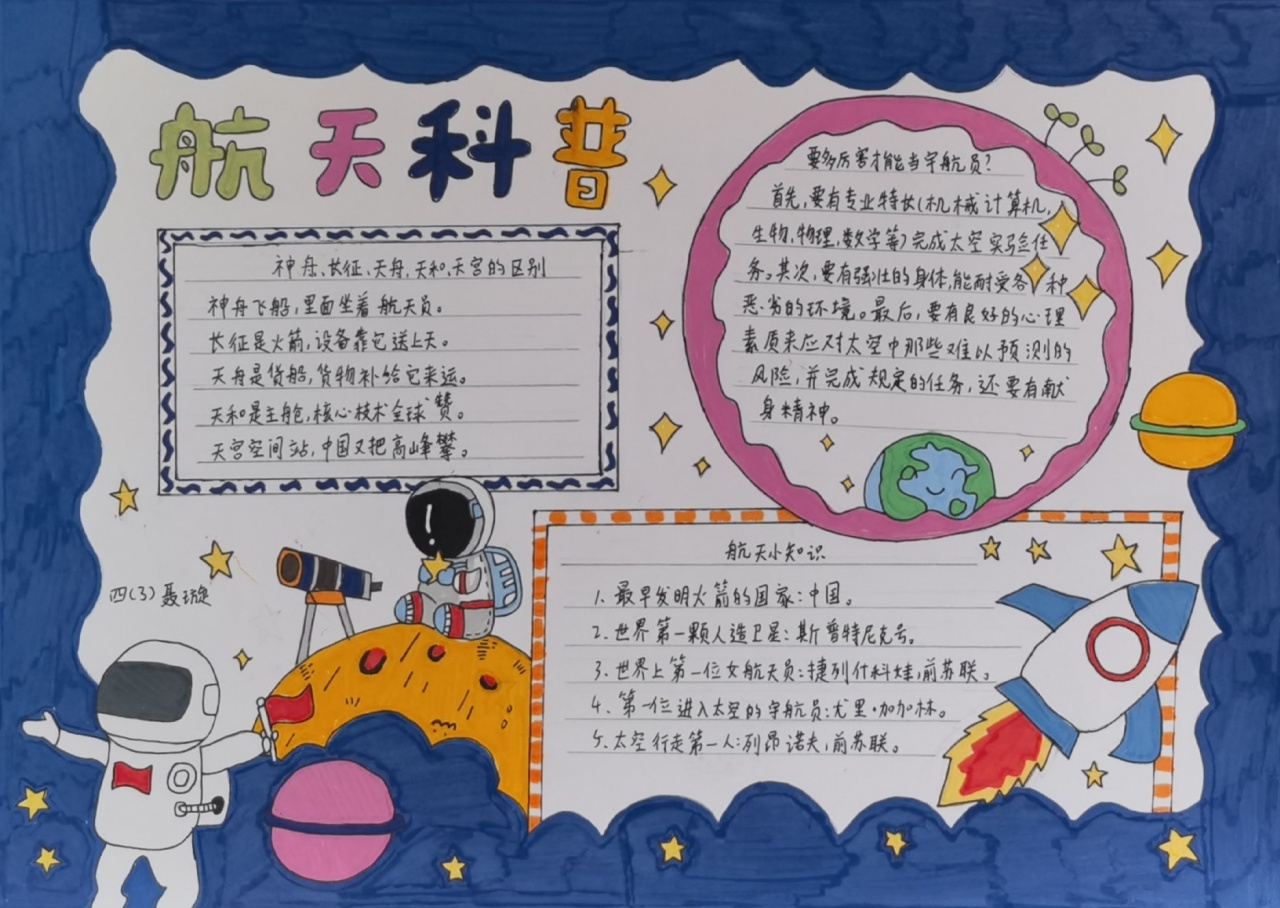 航天科普
神舟、长征、天舟,天和,天宫的区别
神舟飞船,里面坐着航天员。
长征是火箭,设备靠它送上天。
天舟是货船,货物补给它来运。
天和是主舱,核心技术全球赞。
天宫空间站,中国又把高峰攀。
要多厉害才能当宇航员?
首先,要有专业特长(机械计算机,
生物,物理,数学等)完成太空实验任
务。其次,要有强壮的身体,能耐受各种
恶劣的环境。最后,要有良好的心理
素质来应对太空中那些难以预测的
风险,并完成规定的任务,还要有献
身精神。
航天小知识
1. 最早发明火箭的国家:中国。
2. 世界第一颗人造卫星:斯普特尼克号。
3. 世界上第一位女航天员:捷列什科娃,前苏联。
4. 第一位进入太空的宇航员:尤里·加加林。
5. 太空行走第一人:列昂诺夫,前苏联。
四(3)聂璇